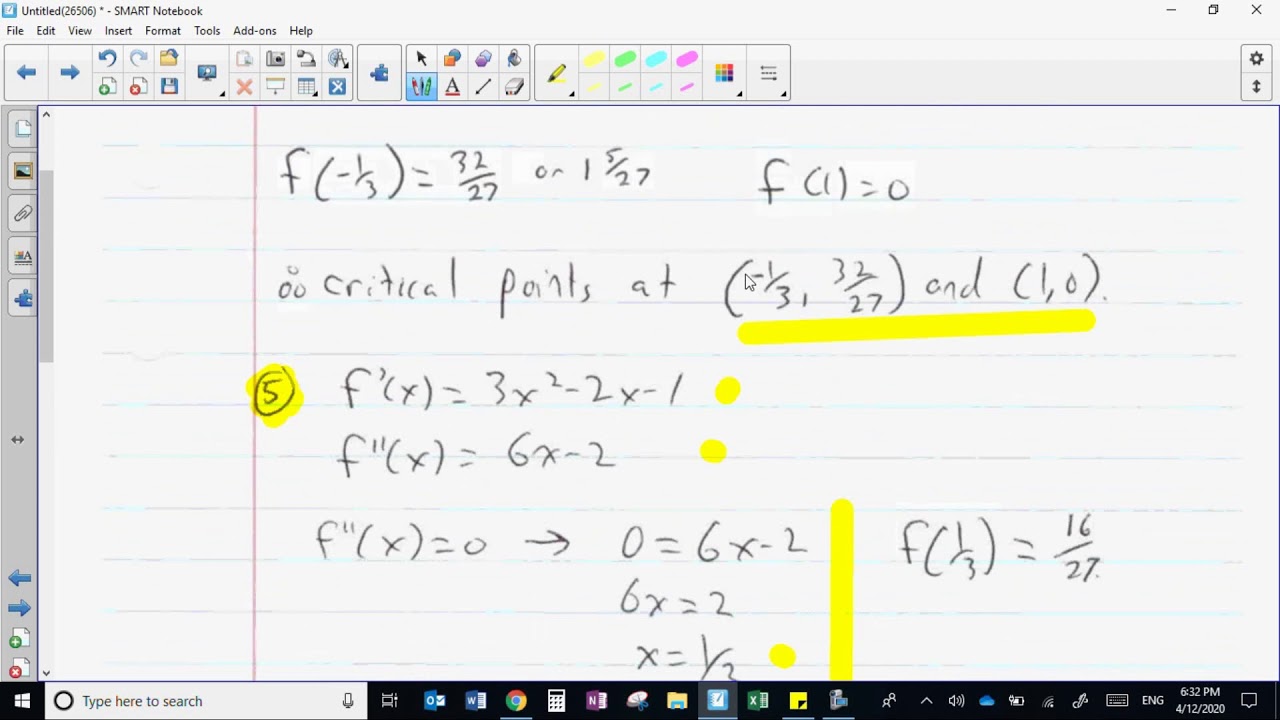 Untitled(26506) * - SMART Notebook
File Edit View Insert Format Tools Add-ons Help
f(-1/3) = 32/27 or 1 5/27 f(1) = 0
∴ critical points at (-1/3, 32/27) and (1,0).
5 f'(x) = 3x²-2x-1
f''(x) = 6x-2
f''(x)=0 → 0 = 6x-2 f(1/3) = 16/27.
6x = 2
x = 1/3
Type here to search
ENG
6:32 PM
4/12/2020